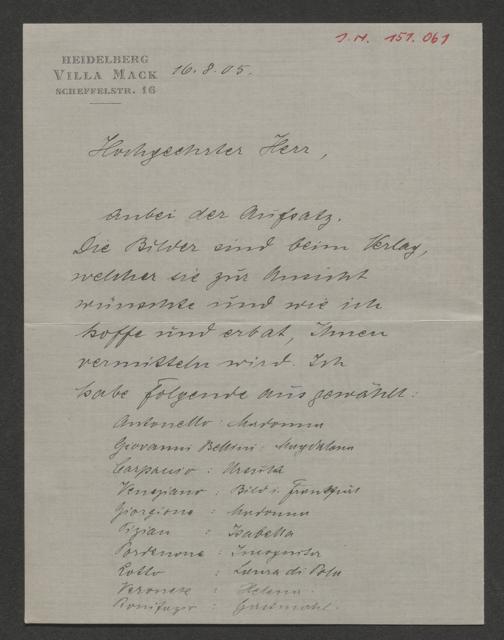 J.N. 151.061
HEIDELBERG
VILLA MACK
SCHEFFELSTR. 16
16.8.05.
Hochgeehrter Herr,
anbei der Aufsatz.
Die Bilder sind beim Verlag,
welcher sie zur Ansicht
wünschte und wie ich
hoffe und erbat, Ihnen
vermitteln wird. Ich
habe folgende ausgewählt:
Antonello: Madonna
Giovanni Bellini: Magdalena
Carpaccio: Ursula
Veneziano: Bild i. Frankfurt
Giorgione: Madonna
Tizian: Isabella
Pordenone: Incognita
Lotto: Laura di Pola
Veronese: Helena
Bonifazio: Gastmahl.